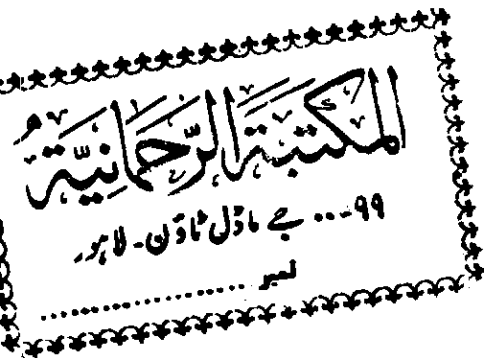 المكتبة الرحمانية
۹۹... جے ماڈل ٹاؤن - لاہور
نمبر ..................